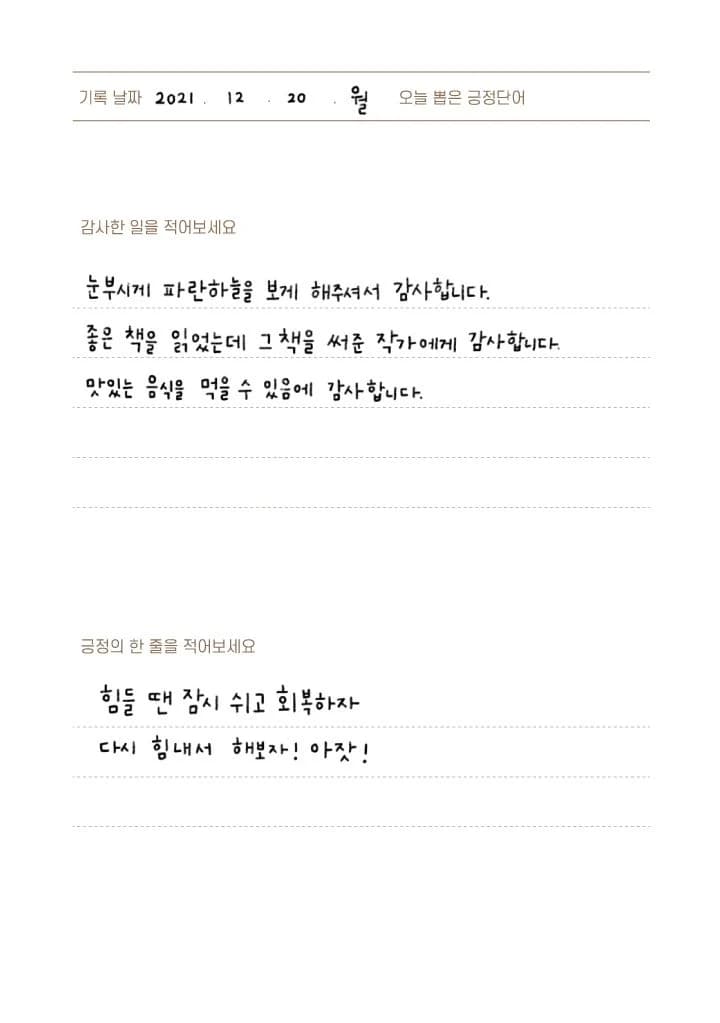 기록 날짜 2021 . 12 . 20 . 월 오늘 뽑은 긍정단어
감사한 일을 적어보세요
눈부시게 파란하늘을 보게 해주셔서 감사합니다.
좋은 책을 읽었는데 그 책을 써준 작가에게 감사합니다.
맛있는 음식을 먹을 수 있음에 감사합니다.
긍정의 한 줄을 적어보세요
힘들 땐 잠시 쉬고 회복하자
다시 힘내서 해보자! 아잣!